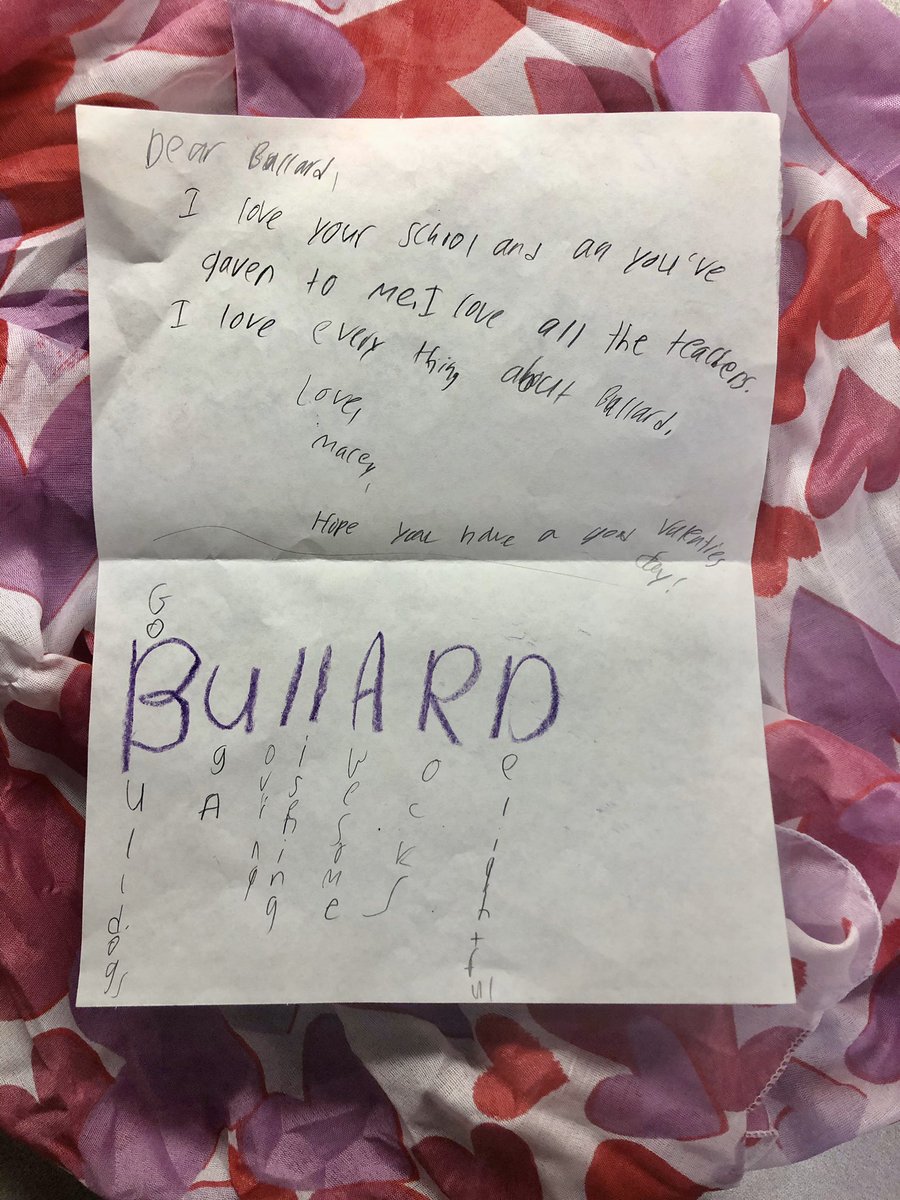 Dear Bullard,
I love your school and all you've
gaven to me, I love all the teachers.
I love every thing about Bullard.
Love,
Macey,
Hope you have a good Valenties
day!
GO
BUllARD
ulldogs
gA
wesome
ocks
elightful